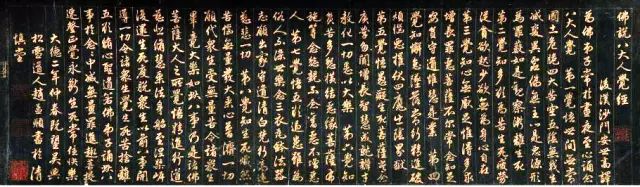 佛說八大人覺經
後漢沙門安世高譯
為佛弟子常於晝夜至心誦念
八大人覺 第一覺悟世間無常
國土危脆四大苦空五陰無我生
滅變異虛偽無主心是惡源形
為罪藪如是觀察漸離生死
第二覺知多欲為苦生死疲勞
從貪欲起少欲無為身心自在
第三覺知心無厭足惟得多求
增長罪惡菩薩不尔常念知足
安貧守道惟慧是業 第四
覺知懈怠墜落常行精進破
煩惱惡摧伏四魔出陰界獄
第五覺悟愚癡生死菩薩常念
廣學多聞增長智慧成就辯才
教化一切悉以大樂 第六覺知
貧苦多怨橫結惡緣菩薩布
施等念冤親不念舊惡不憎惡
人 第七覺悟五欲過患雖為
俗人不染世樂常念三衣瓦鉢法器
志願出家守道清白梵行高遠
慈悲一切 第八覺知生死熾然
苦惱無量發大乘心普濟一切
願代眾生受無量苦令諸眾生
畢竟大樂如此八事乃是諸佛
菩薩大人之所覺悟精進行道
慈悲修慧乘法身船至涅槃岸
復還生死度脫眾生以前八事開
導一切令諸眾生覺生死苦捨離
五欲修心聖道若佛弟子誦此八
事於念念中滅無量罪進趣菩提
速登正覺永斷生死常住快樂
大德二年仲春既望吳興
松雪道人趙孟頫書於清
慎堂